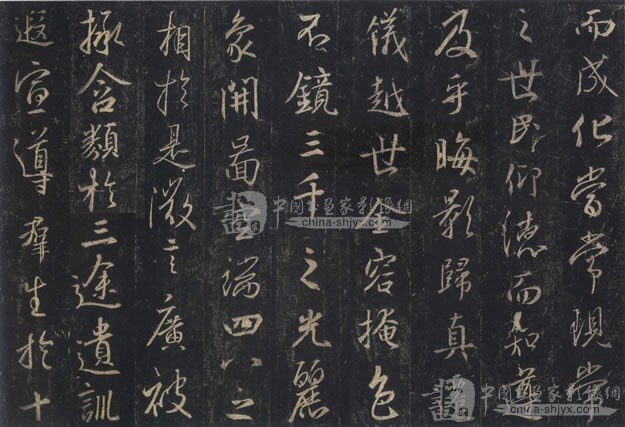 而成化當常現常
之世民仰德而知遵
及乎晦影歸真
儀越世金容掩色
不鏡三千之光麗
象開圖空端四八之
相於是微言廣被
拯含類於三途遺訓
遐宣導羣生於十
中國書畫家影像網
china-shjyx.com
中國書畫家影像網
china-shjyx.com